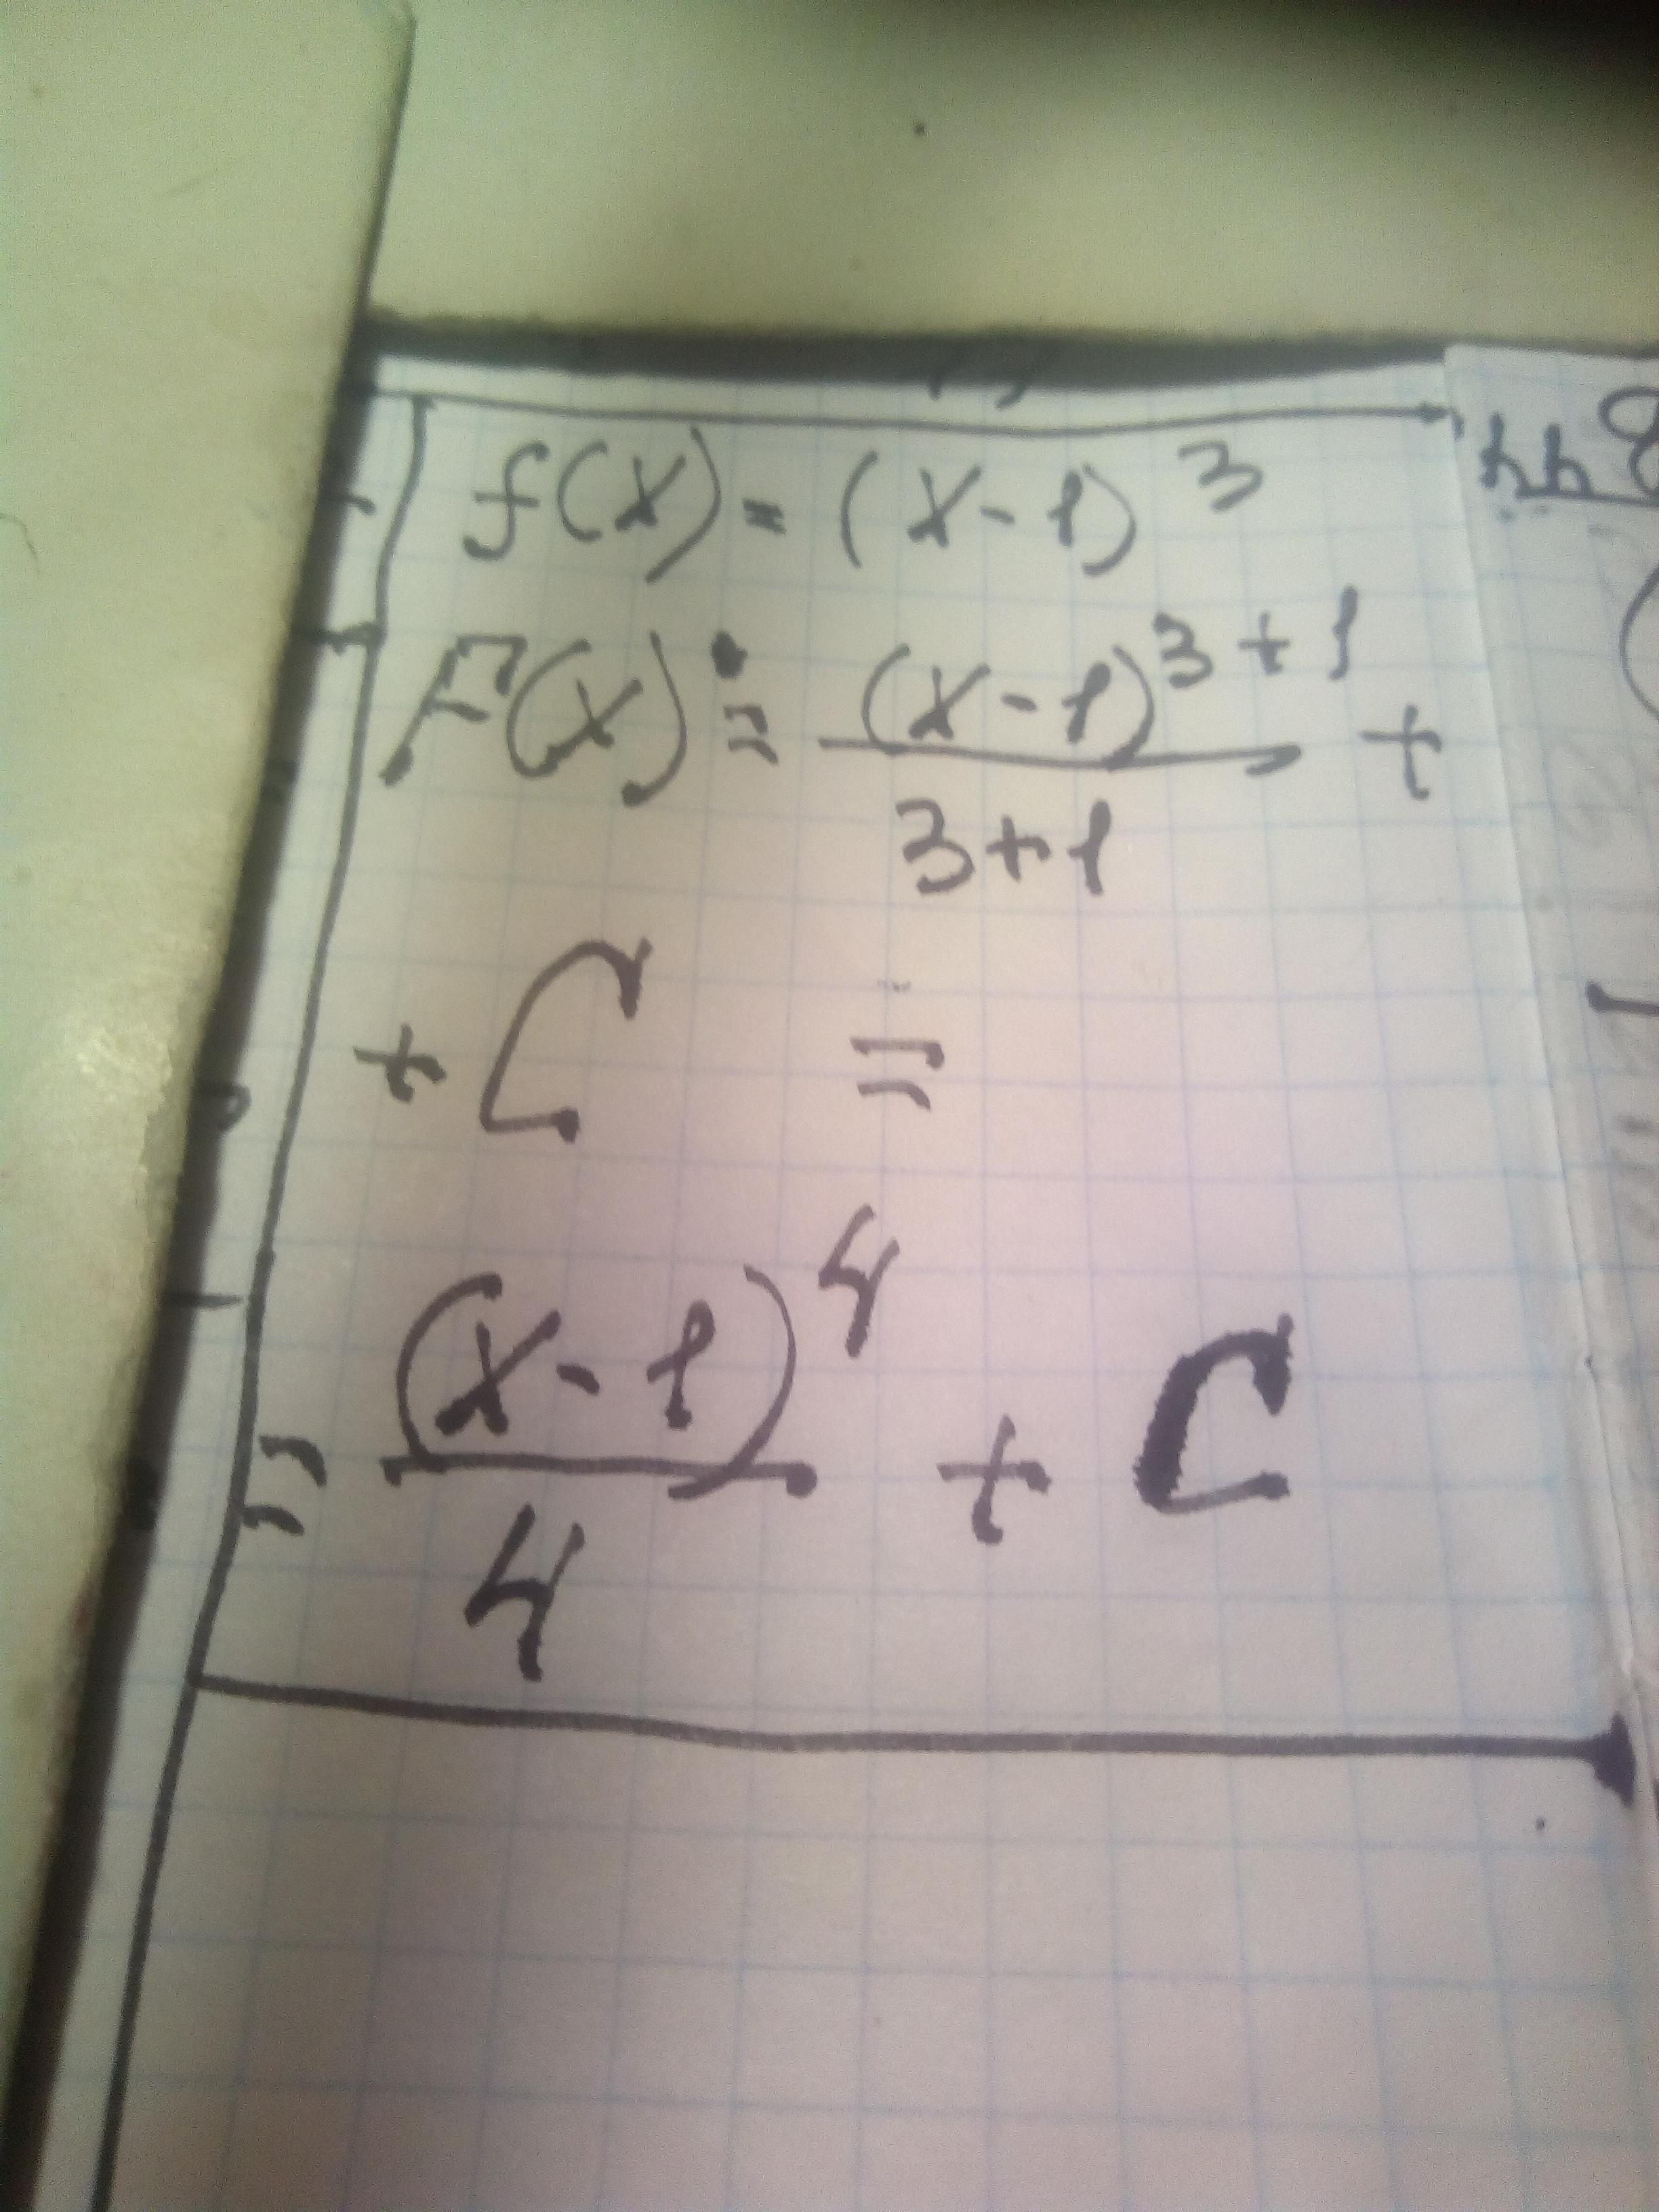 f(x) = (x-1)^3
F(x) = (x-1)^{3+1} / 3+1 +
+ C =
= (x-1)^4 / 4 + C